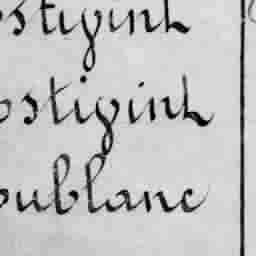 ostigink
ostigink
oublanc